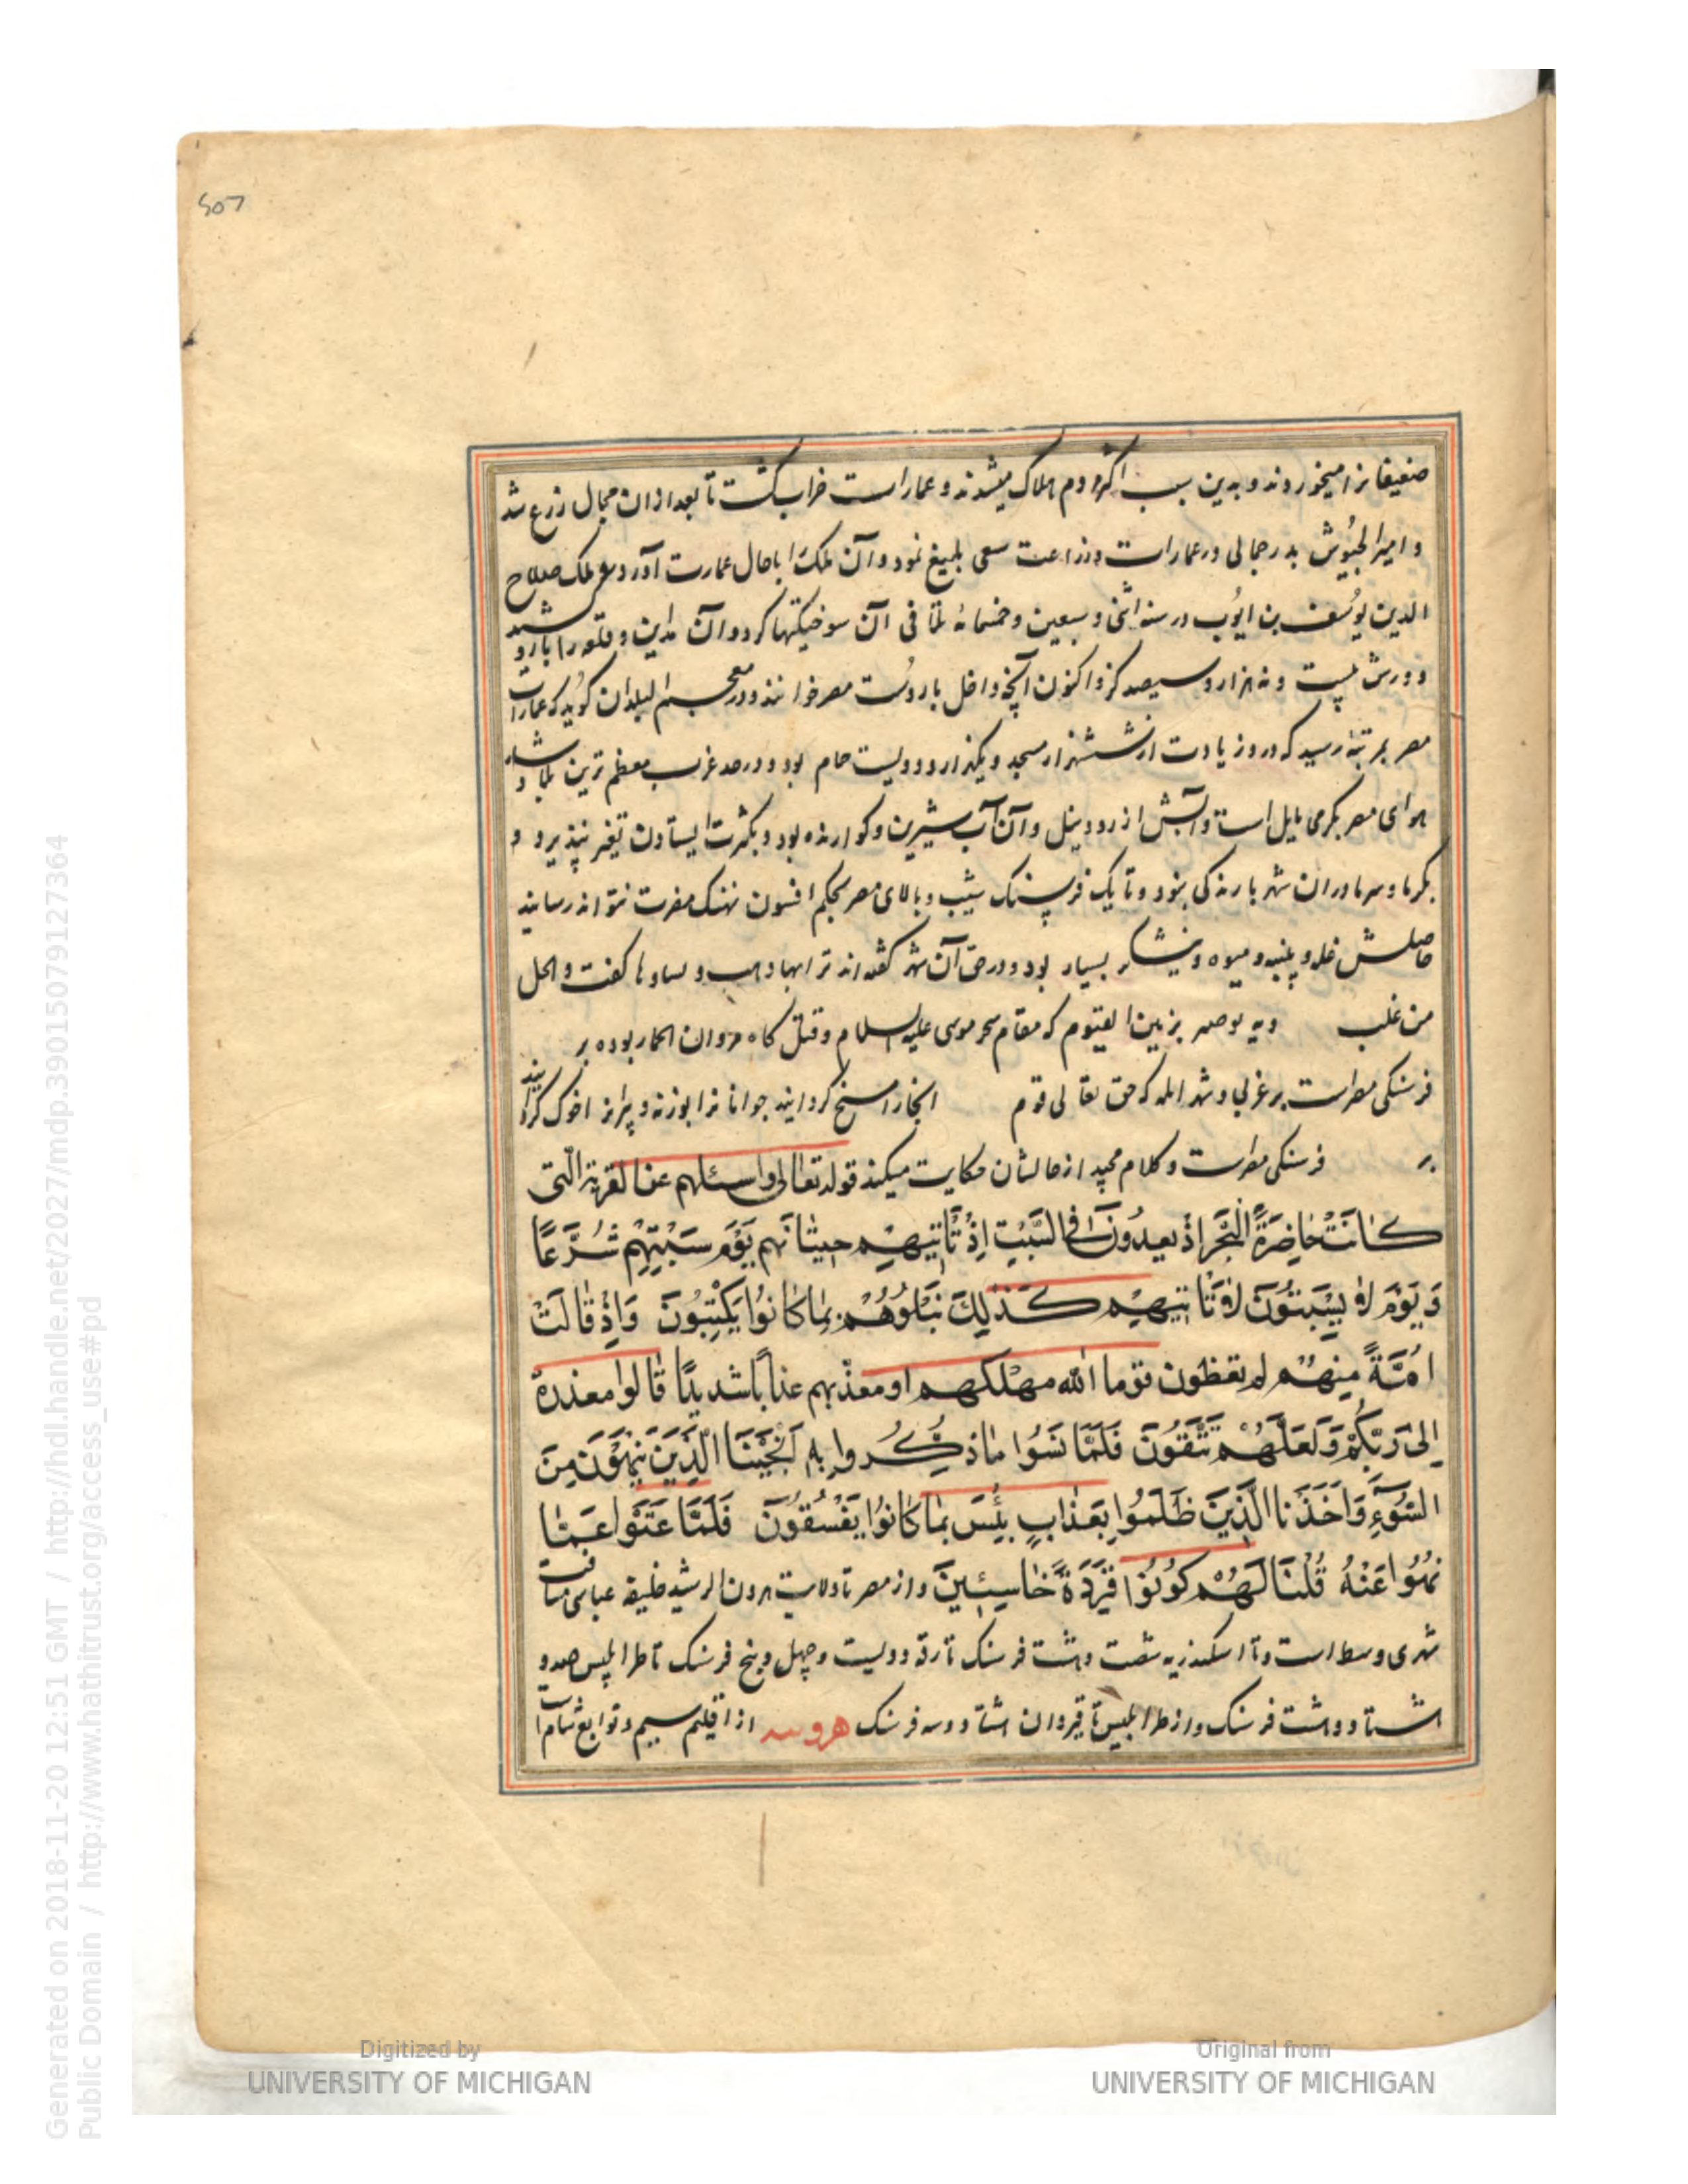 507
ضعیفانرا میخوردند و بدین سبب اکثر مردم هلاک میشدند و عمارات خراب گشت تا بعد ازان مجال زرع شد
و امیر الجیوش بدر جمالی در عمارات و زراعت سعی بلیغ نمود و آن ملک را باحال عمارت آورد و ملک صلاح
الدین یوسف بن ایوب در سنه اثنی و سبعین و خمسمائه تلافی آن سوختگیها کرد و آن مداین و قلعه را بارو کشید
دورش بیست و نه هزار و سیصد گز و اکنون آنچه داخل باروست مصر خوانند و در معجم البلدان گوید که عمارات
مصر بمرتبه رسید که درو زیادت از ششهزار مسجد و یکهزار و دویست حمام بود و در حد غرب معظم ترین بلاد شد
هوای مصر بگرمی مایل است و آبش از رود نیل و آن آب شیرین و گوارنده بود و بکثرت ایستادن تغیر نپذیرد و
بگرما و سرما دران شهر بارندگی نبود و تا یک فرسنک شیب و بالای مصر بحکم افسون نهنک مضرت نتواند رسانید
حاصلش غله و پنبه و میوه و نیشکر بسیار بود و در حق آن شهر گفته اند ترابها ذهب و نساوها لعبت و الحل
من غلب دیه بوصیر بزمین الفیوم که مقام سحر موسی علیه السلام و قتل گاه مروان الحمار بوده بر
فرسنکی مصرست بر غربی و شهر ایله که حق تعالی قوم انجا را مسخ گردانید جوانانرا بوزنه و پیرانرا خوک گردانید
بر فرسنکی مصرست و کلام مجید از حالشان حکایت میکند قوله تعالی واسئلهم عن القریة التی
کانت حاضرة البحر اذ یعدون فی السبت اذ تاتیهم حیتانهم یوم سبتهم شرعا
و یوم لا یسبتون لا تاتیهم کذلک نبلوهم بما کانوا یکتبون واذ قالت
امة منهم لم تعظون قوما الله مهلکهم او معذبهم عذابا شدیدا قالوا معذرة
الی ربکم ولعلهم تتقون فلما نسوا ما ذکروا به انجینا الذین ینهون من
السوء واخذنا الذین ظلموا بعذاب بئیس بما کانوا یفسقون فلما عتوا عما
نهوا عنه قلنا لهم کونوا قردة خاسئین و از مصر تا ولایت هرون الرشید خلیفه عباسی ساخت
شهری وسط است و تا اسکندریه شصت و هشت فرسنک تا رقه دویست و چهل و پنج فرسنک تا طرابلس صد و
هشتاد و هشت فرسنک و از طرابلس تا قیروان هشتاد و سه فرسنک هرونیه از اقلیم سیم و توابع شام است
Digitized by
UNIVERSITY OF MICHIGAN
Original from
UNIVERSITY OF MICHIGAN
Generated on 2018-11-20 12:51 GMT / http://hdl.handle.net/2027/mdp.39015079127364
Public Domain / http://www.hathitrust.org/access_use#pd